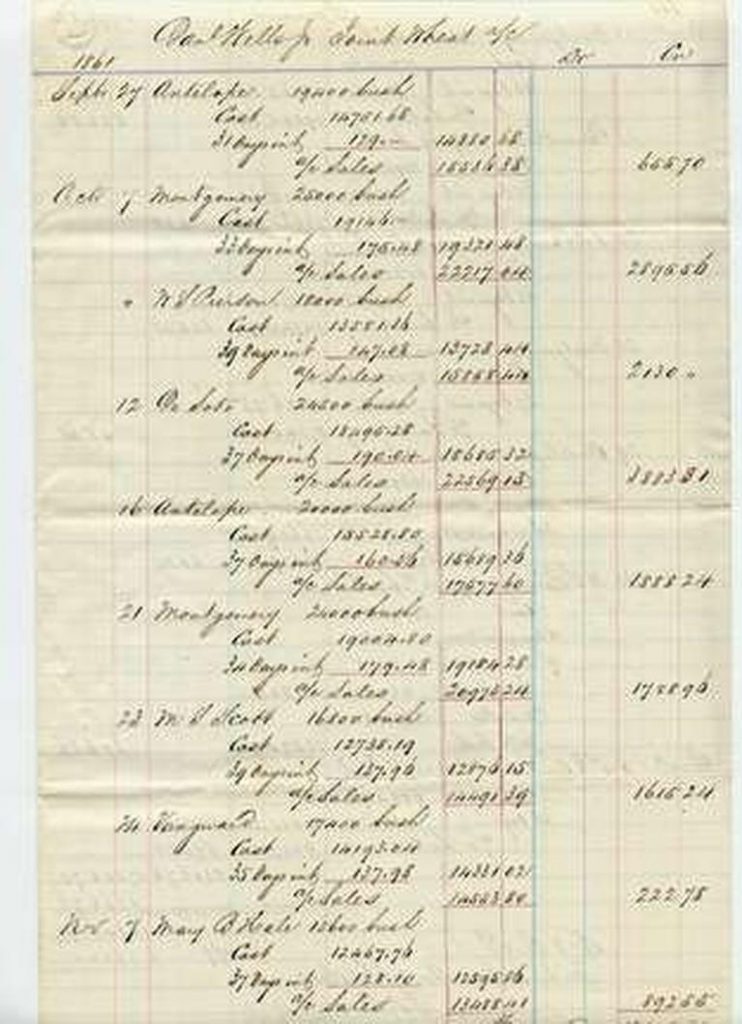 Danl Wells Jr Joint Wheat a/c
1861 Dr Cr
Sept 27 Antelope 19400 bush
Cost 14701.68
31 Days int 179.— 14880 68
a/c Sales 15536 38 655 70
Oct 7 Montgomery 25000 bush
Cost 19146 —
33 Days int 175.48 19321 48
a/c Sales 22217 04 2895 56
" 18000 bush
Cost 13581.36
39 Days int 147.08 13728 44
a/c Sales 15858 44 2130 "
12 De Soto 24200 bush
Cost 18495.28
37 Days int 190.04 18685 32
a/c Sales 22569 13 3883 81
16 Antelope 20000 bush
Cost 15528.80
37 Days int 160.56 15689 36
a/c Sales 17577 60 1888 24
21 Montgomery 24000 bush
Cost 19004.80
34 Days int 179.48 19184 28
a/c Sales 20973 24 1788 96
23 M S Scott 16800 bush
Cost 12738.19
39 Days int 137.96 12876 15
a/c Sales 14491 39 1615 24
24 Vanguard 17400 bush
Cost 14193.04
35 Days int 137.98 14331 02
a/c Sales 14553 80 222 78
Nov 7 Mary B Hale bush
Cost 12467.76
37 Days int 128.10 12595 86
a/c Sales 13488 41 892 55